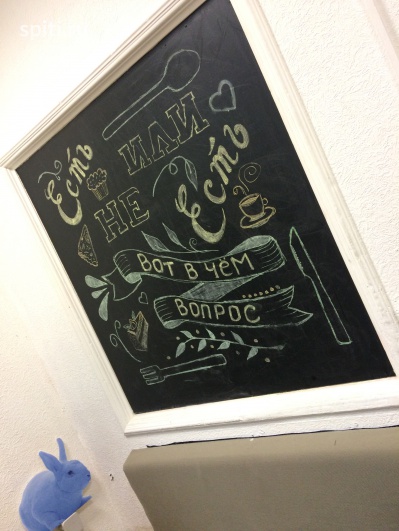 Есть
ИЛИ
НЕ
Есть
ВОТ В ЧЁМ
ВОПРОС